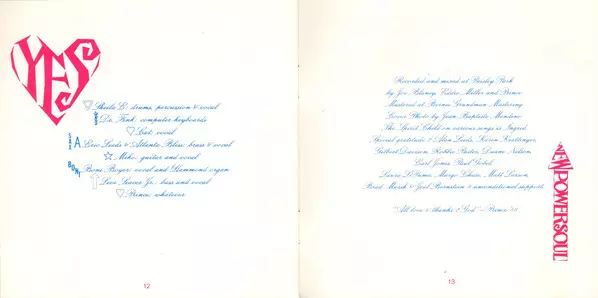 YES
Sheila E: drums, percussion & vocal
Dr. Fink: computer keyboards
Cat: vocal
Eric Leeds & Atlanta Bliss: brass & vocal
Miko: guitar and vocal
Boni Boyer: vocal and Hammond organ
Levi Seacer Jr.: bass and vocal
Prince: whatever
12
Recorded and mixed at Paisley Park
by Joe Blaney, Eddie Miller and Prince
Mastered at Bernie Grundman Mastering
Cover Photo by Jean Baptiste Mondino
The Spirit Child on various songs is Ingrid
Special gratitude 2 Alan Leeds, Karen Krattinger,
Gilbert Davison, Robbie Paster, Duane Nelson,
Earl Jones, Paul
Laura LiPuma, Margo Chase, Matt Larson,
Brad Marsh & Joel Bernstein 4 unconditional support
"All love & thanks 2 God" - Prince '88
NEWPOWERSOUL
13